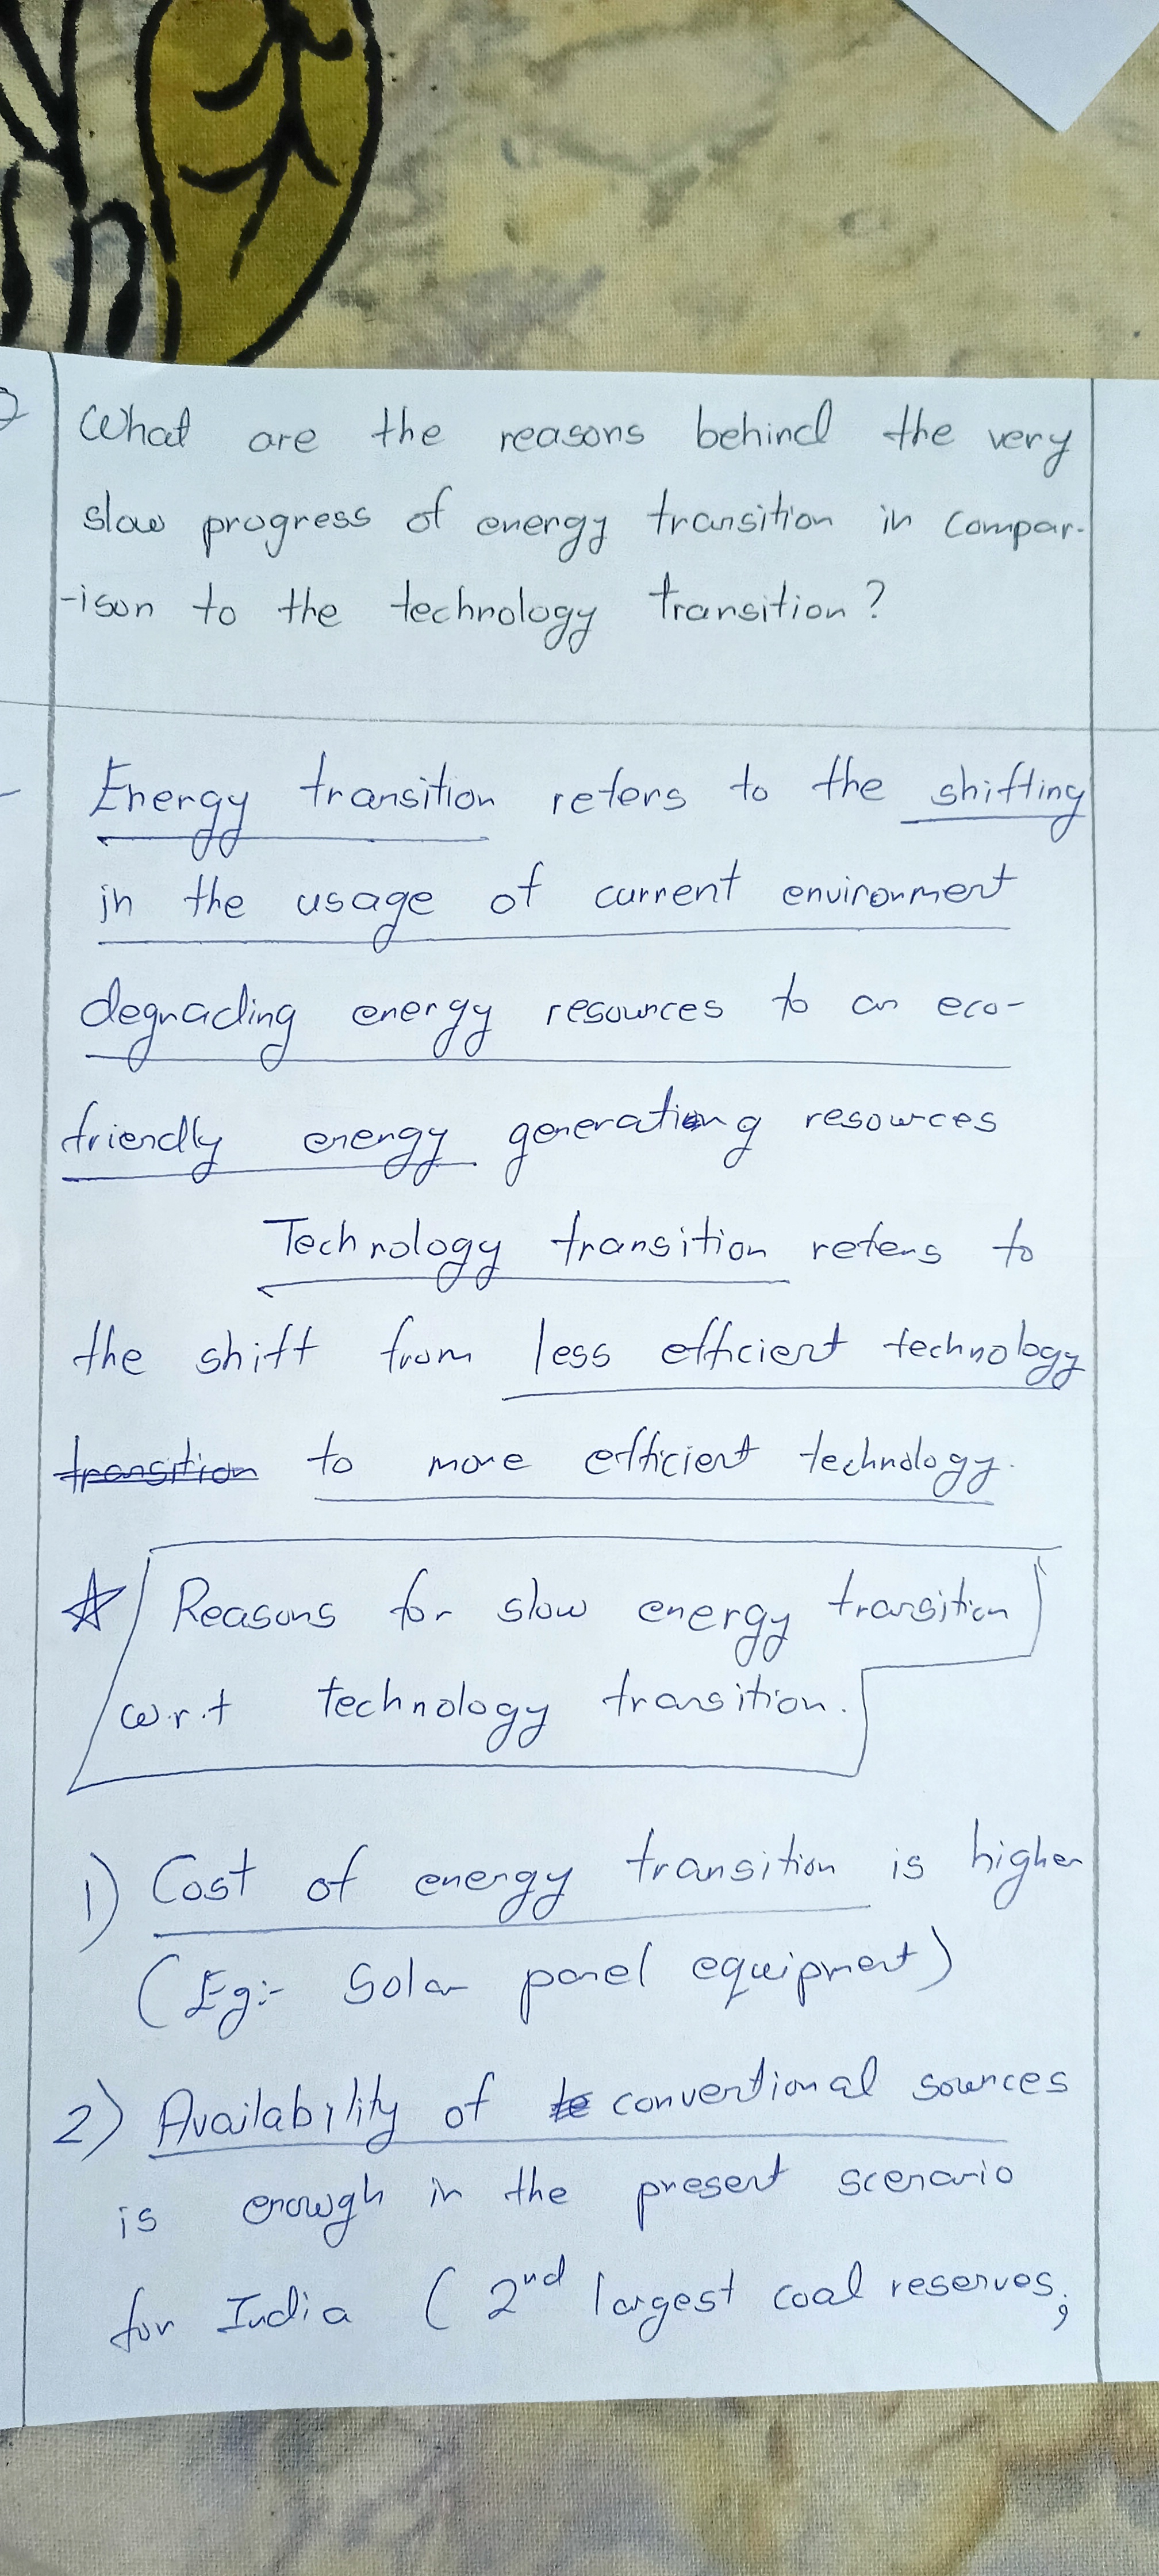 What are the reasons behind the very
slow progress of energy transition in compar-
-ison to the technology transition?
Energy transition refers to the shifting
in the usage of current environment
degrading energy resources to an eco-
friendly energy generating resources
Technology transition refers to
the shift from less efficient technology
transition to more efficient technology.
Reasons for slow energy transition
w.r.t technology transition.
1) Cost of energy transition is higher
(Eg:- Solar panel equipment)
2) Availability of conventional sources
is enough in the present scenario
for India (2nd largest coal reserves;